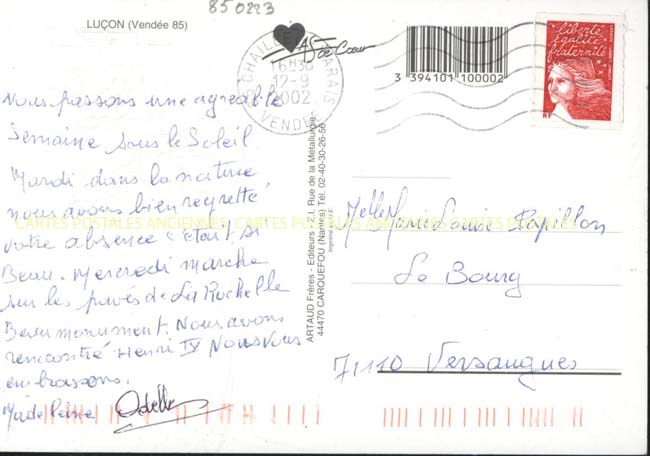 850223
LUÇON (Vendée 85)
As de Cœur
CHAILLE MARAIS
16H30
12-9
2002
VENDEE
3 394101 100002
liberté
égalité
fraternité
RF
Nous passons une agreable
Semaine sous le Soleil
Mardi dans la nature
nous avons bien regretté
votre absence c'était si
Beau. Mercredi marche
sur les pavés de La Rochelle
Beau monument. Nous avons
rencontré Henri IV Nous Vous
embrassons.
Madeleine Odette
CARTES POSTALES ANCIENNES CARTES POSTALES ANCIENNES CARTES POSTALES
ARTAUD Frères - Editeurs - Z.I. Rue de la Métallurgie
44470 CARQUEFOU (Nantes) Tél. 02-40-30-26-56
Melle Marie Louise Papillon
Le Bourg
71110 Versaugues